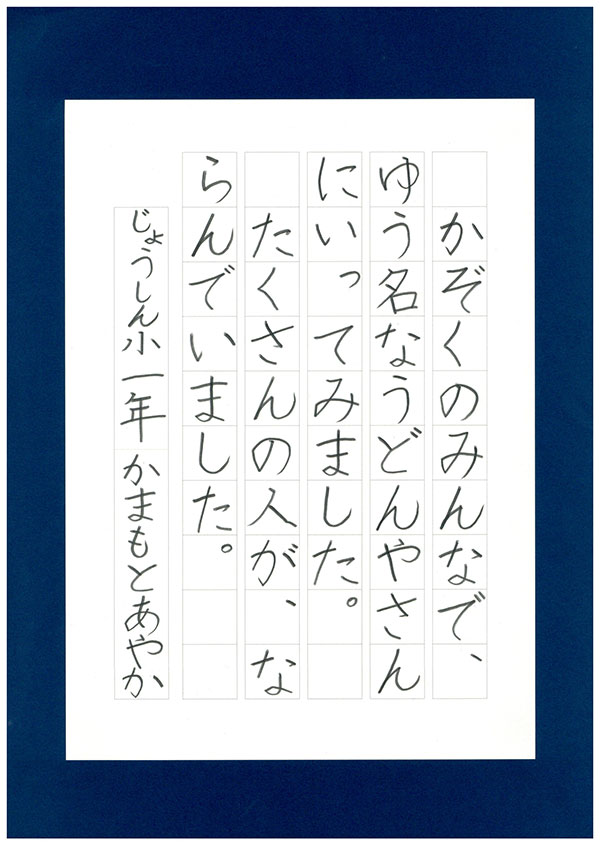 かぞくのみんなで、
ゆう名なうどんやさん
にいってみました。
たくさんの人が、な
らんでいました。
じょうしん小一年かまもとあやか